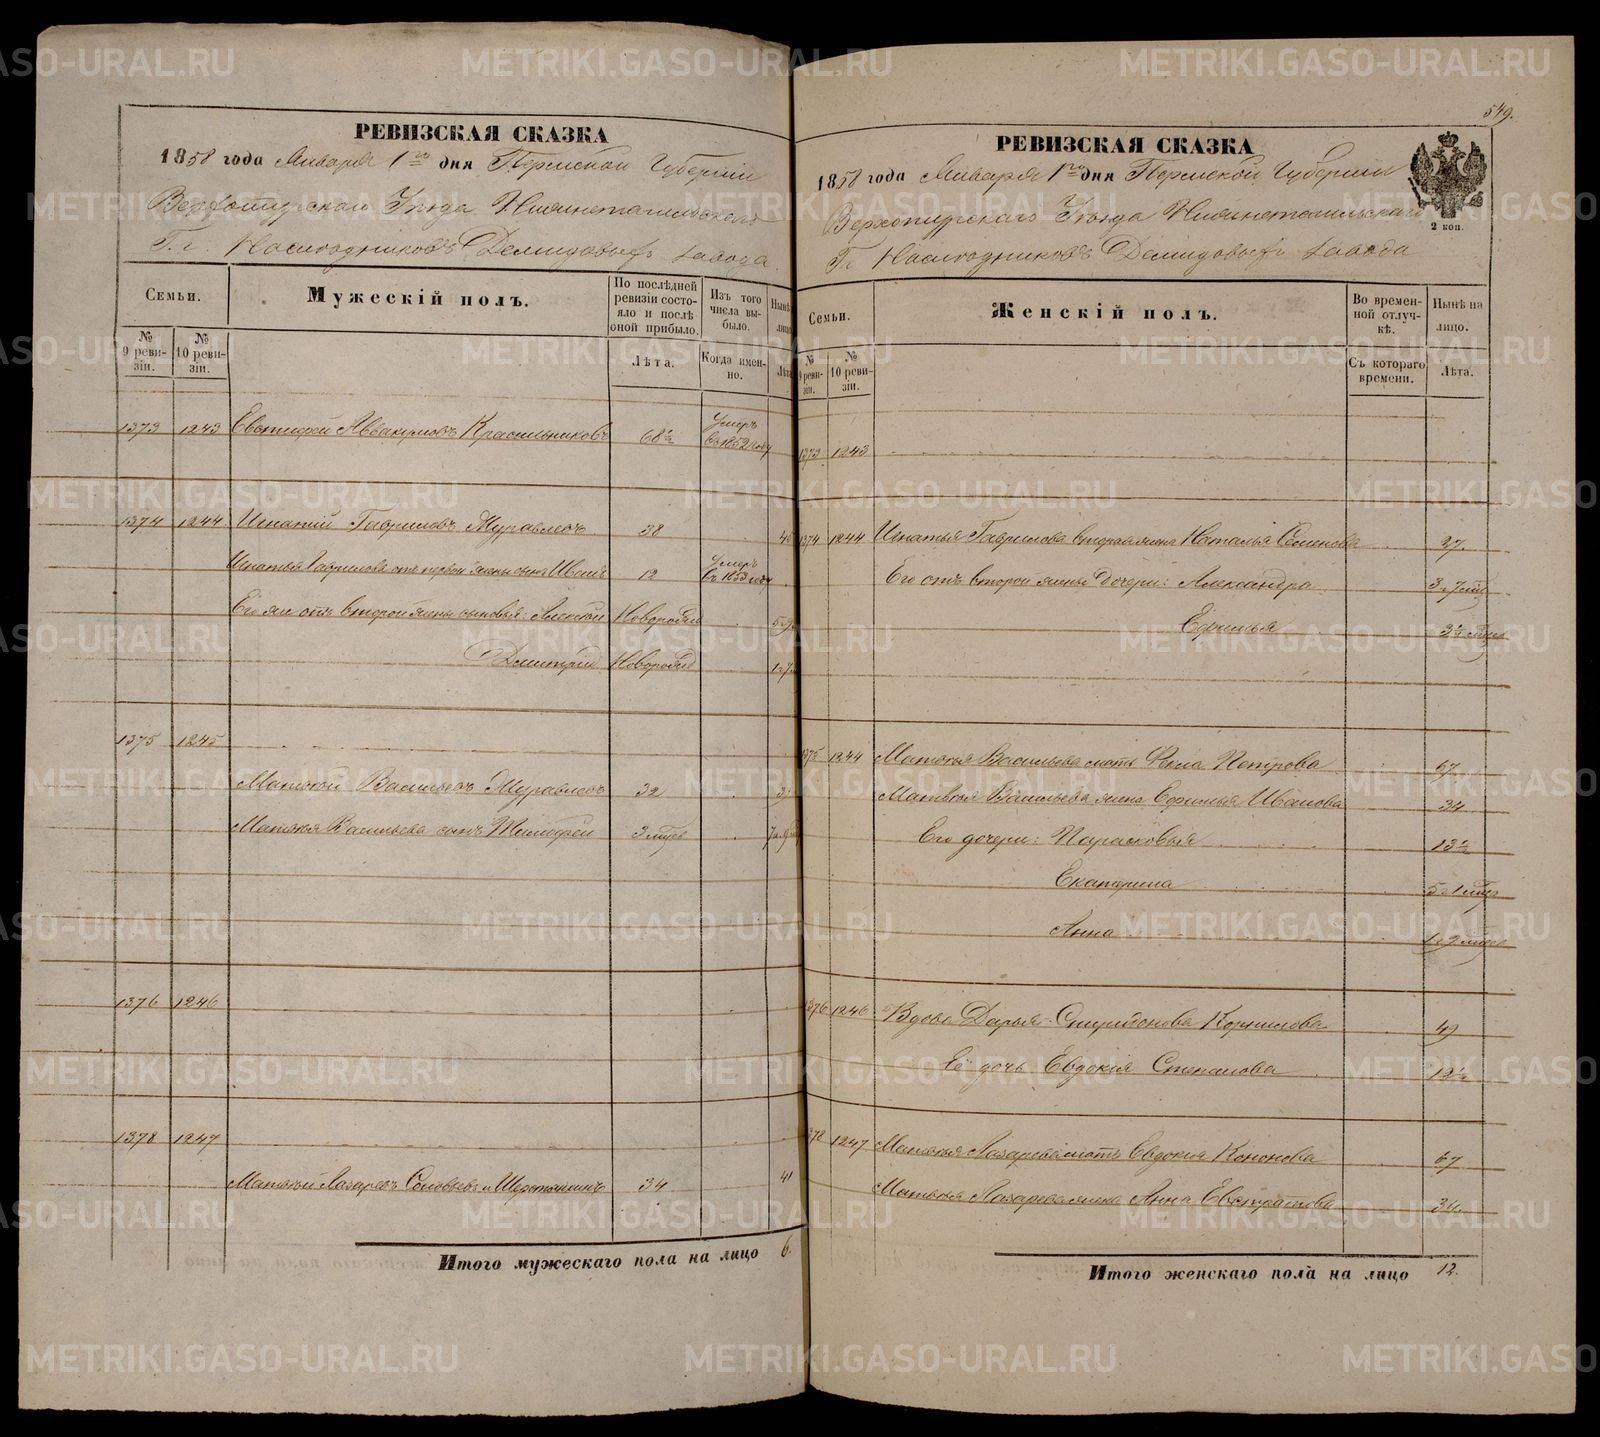 РЕВИЗСКАЯ СКАЗКА
1858 года Января 1го дня Пермской Губернии
Верхотурскаго Уезда Нижнетагильскаго
Г.г. Наследниковъ Демидовыхъ завода
Семьи.
Мужескій полъ.
По послѣдней ревизіи состояло и послѣ оной прибыло.
Изъ того числа выбыло.
Нынѣ лицо
№ 9 ревизіи.
№ 10 ревизіи.
Лѣта.
Когда именно.
Лѣта
1373 1243 Евстифей Аввакумовъ Красильниковъ 68½ Умеръ въ 1852 году
1374 1244 Игнатій Гавриловъ Муравлевъ 38
Игнатья Гаврилова отъ первой жены сынъ Иванъ 12 Умеръ въ 1853 году
Его же отъ второй жены сыновья: Алексей Новорожд
Дмитрій Новорожд
1375 1245
Матвей Васильевъ Муравлевъ 32
Матвея Васильева сынъ Тимофей 3 мцев
1376 1246
1378 1247
Матвей Лазаревъ Соловьевъ и 34 41
Итого мужескаго пола на лицо 6.
549.
РЕВИЗСКАЯ СКАЗКА
1858 года Января 1го дня Пермской Губернии
Верхотурскаго Уезда Нижнетагильскаго
Гг Наследниковъ Демидовыхъ завода
2 коп.
Семьи.
Женскій полъ.
Во временной отлучкѣ.
Нынѣ на лицо.
№ 9 ревизіи.
№ 10 ревизіи.
Съ котораго времени.
Лѣта.
1373 1243
1374 1244 Игнатья Гаврилова вторая жена Наталья Семенова 27.
Его отъ второй жены дочери: Александра
Ефимья
1375 1244 Матвея Васильева мать Фекла Петрова 67
Матвея Васильева жена Ефимья Иванова 34
Его дочери: Парасковья 13½
Екатерина 5 и 1 мцев
Анна
1376 1246 Вдова Дарья Спиридонова Корнилова 49
Её дочь Евдокія Степанова
1378 1247 Матвея Лазарева мать Евдокия Кононова 67
Матвея Лазарева жена Анна Евстратова 34.
Итого женскаго пола на лицо 12.
METRIKI.GASO-URAL.RU